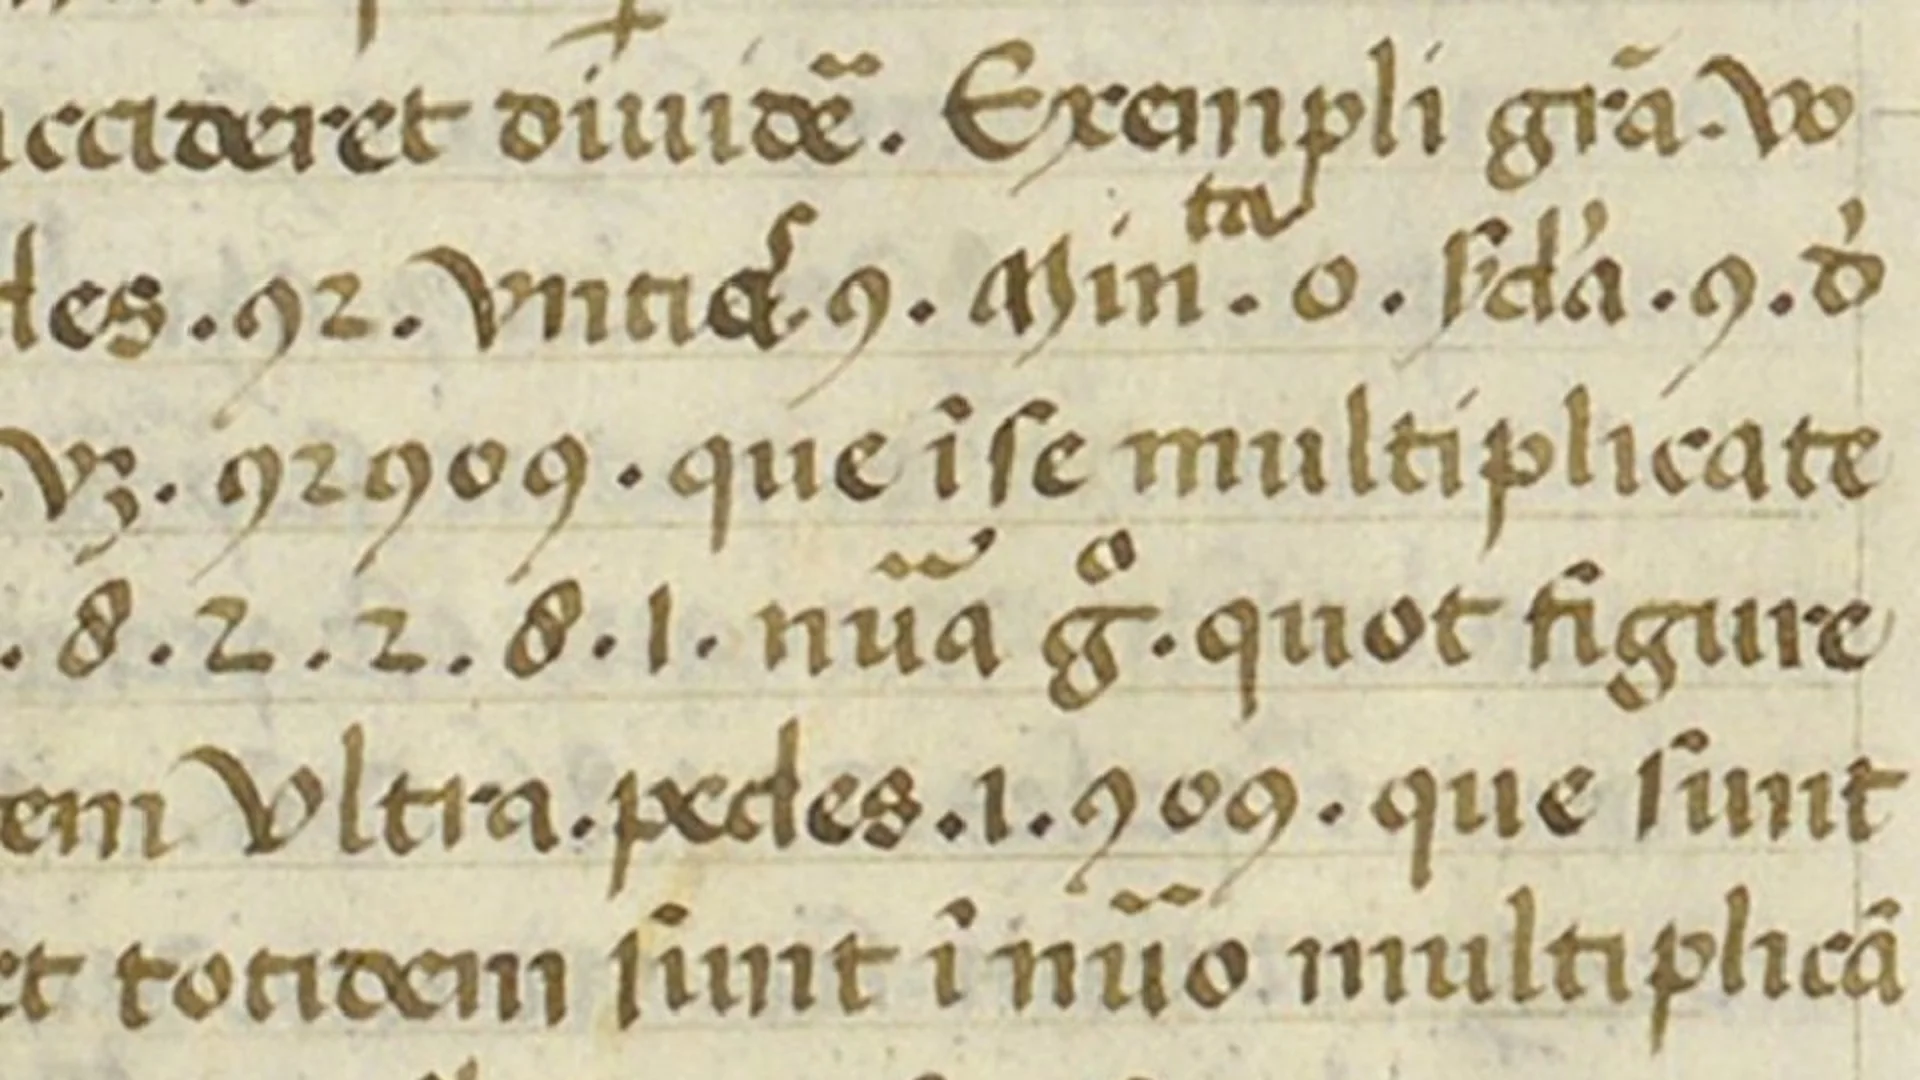 accideret diuidẽ. Exempli grã. vo
des . 92 . Vnciaꝝ . 9 . Minta . 0 . scd'a . 9 . d'
Vꝫ . 92909 . que ĩ se multiplicate
. 8 . 2 . 2 . 8 . 1 . nũa g̃o . quot figure
em vltra . pedes . 1 . 909 . que sunt
et totidem sunt ĩ nũo multiplicã